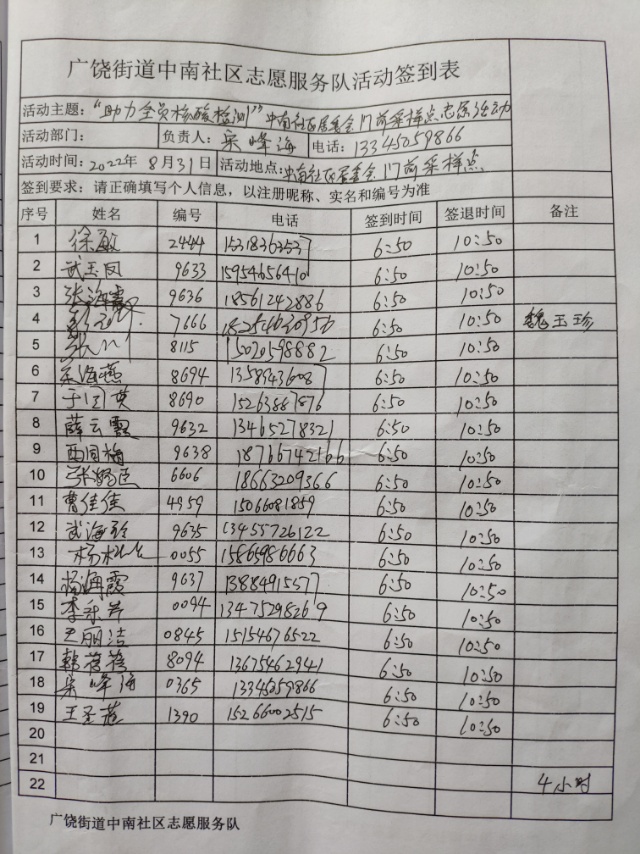 广饶街道中南社区志愿服务队活动签到表
活动主题：“助力全员核酸检测”中南社区居委会门前采样点志愿活动
活动部门： 负责人：吴峰海 电话：13345059866
活动时间：2022年8月31日 活动地点：中南社区居委会门前采样点
签到要求：请正确填写个人信息，以注册昵称、实名和编号为准
序号 姓名 编号 电话 签到时间 签退时间 备注
1 徐敏 2444 6:50 10:50
2 武玉凤 9633 15954656410 6:50 10:50
3 张海霞 9636 18561242886 6:50 10:50
4 7666 6:50 10:50 魏玉珍
5 8115 15020598882 6:50 10:50
6 海燕 8694 13589436087 6:50 10:50
7 于国英 8690 15263881876 6:50 10:50
8 薛云霞 9632 13465278321 6:50 10:50
9 西国梅 9638 18766742166 6:50 10:50
10 6606 18663209366 6:50 10:50
11 曹佳佳 4959 15066081859 6:50 10:50
12 武海玲 9635 13455726122 6:50 10:50
13 0055 15865986663 6:50 10:50
14 杨海霞 9637 13884915577 6:50 10:50
15 0094 13475298269 6:50 10:50
16 丽洁 0845 15154676522 6:50 10:50
17 韩蓓蓓 8094 13675462941 6:50 10:50
18 吴峰海 0365 13345059866 6:50 10:50
19 王圣莲 1390 15266002515 6:50 10:50
20
21
22 4小时
广饶街道中南社区志愿服务队